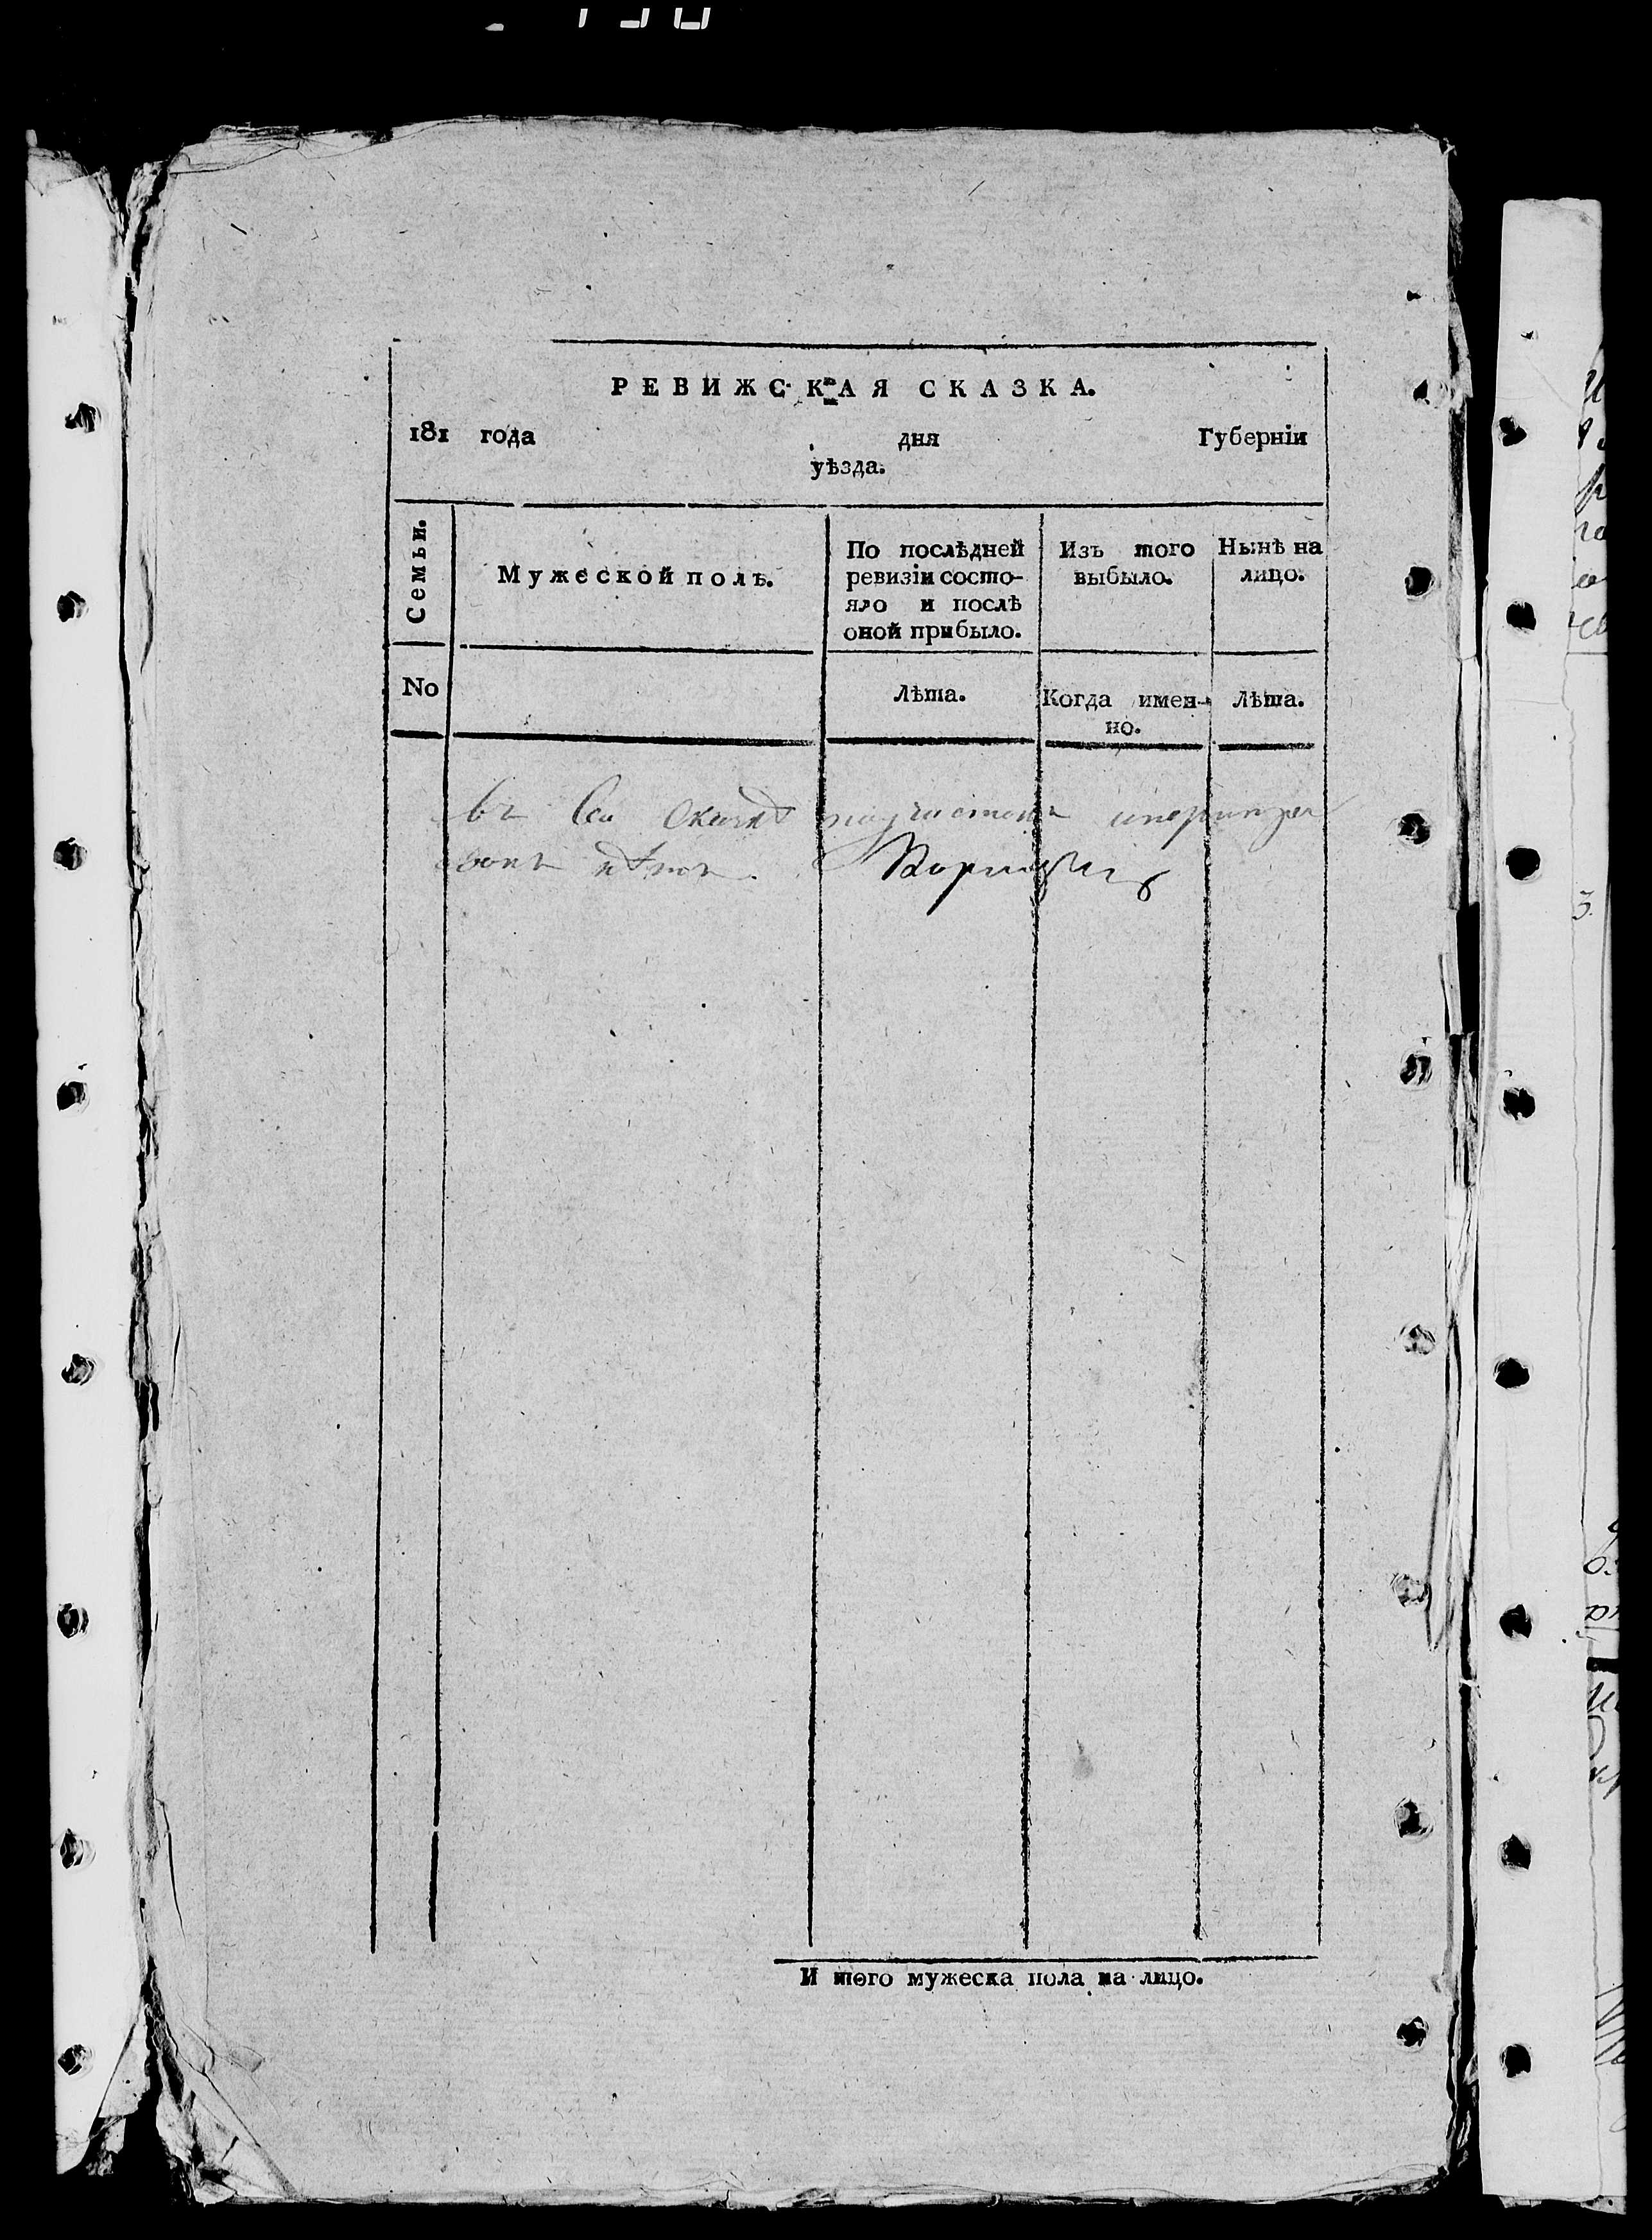 РЕВИЖСКАЯ СКАЗКА.
181 года дня Губернїи
уѣзда.
Семьи.
Мужеской полъ.
По послѣдней
ревизїи состо-
яло и послѣ
оной прибыло.
Изъ того
выбыло.
Нынѣ на
лицо.
No
Лѣта.
Когда имен-
но.
Лѣта.
въ сей скаскѣ подчистокъ и
нѣтъ.
И того мужеска пола на лицо.